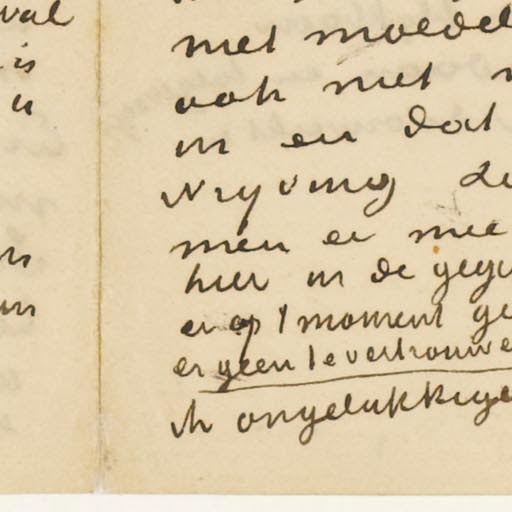 val
is
u
met moedel
ook met
in en dat
wryving
men er mee
hier in de gege
er op 't moment ge
er geen te vertrouwe
ik ongelukkige